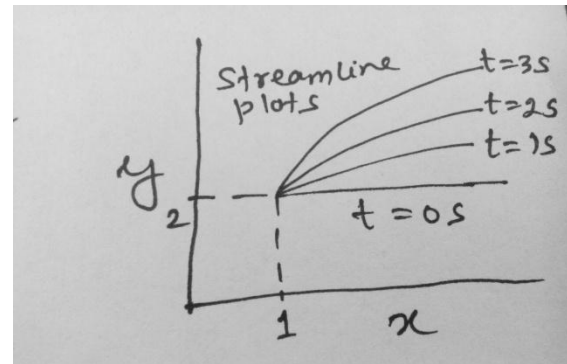 Streamline
plots
t=3s
t=2s
t=1s
t=0s
y
2
1
x